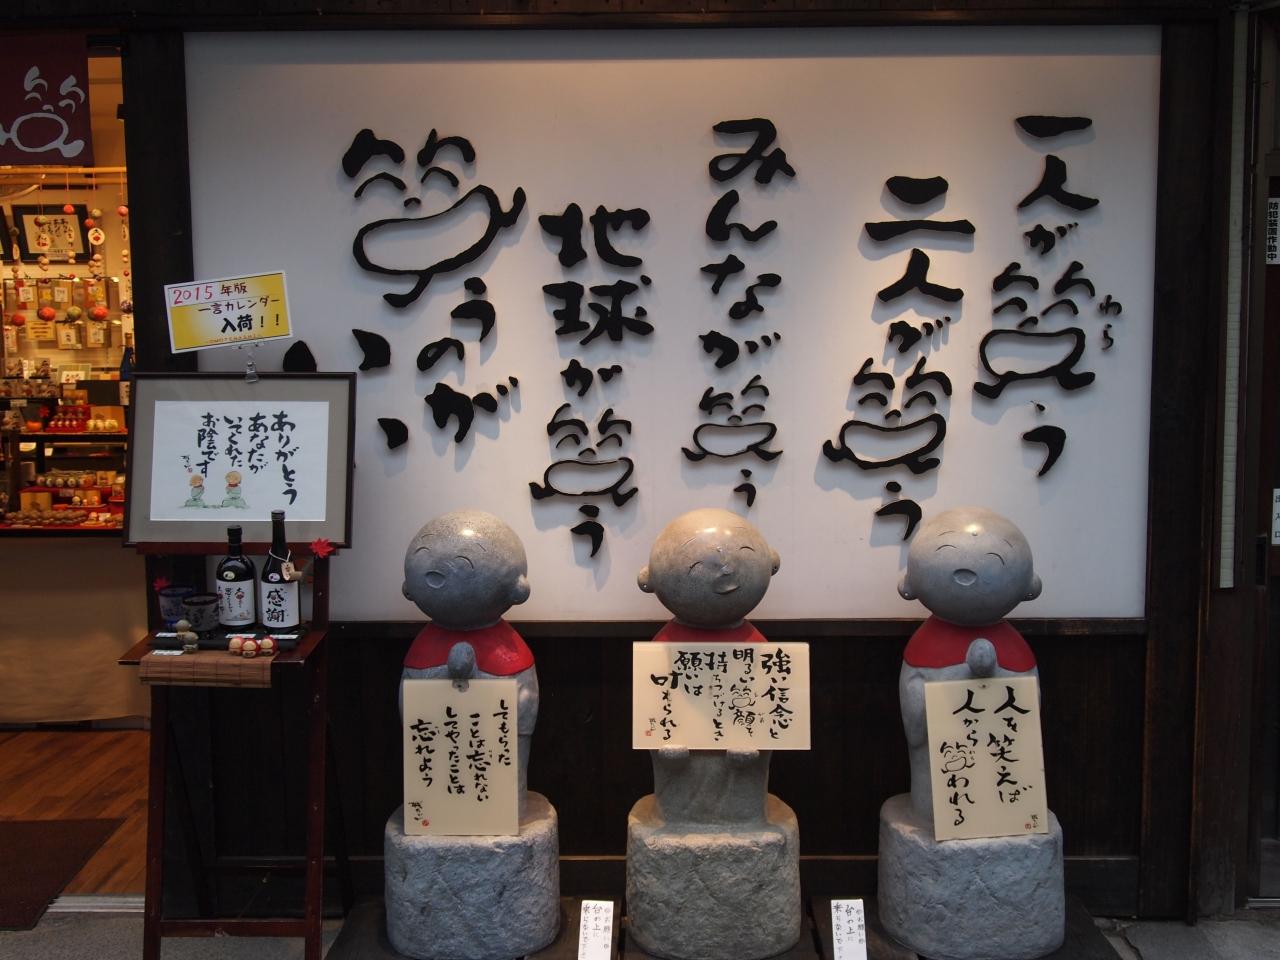 一人が笑う
わら
二人が笑う
みんなが笑う
地球が笑う
笑うのがいい
2015年版
一言カレンダー
入荷!!
ありがとう
あなたが
いてくれた
お陰です
感謝
してもらった
ことは忘れない
してやったことは
忘れよう
強い信念と
明るい笑顔を
持ちつづけるとき
願いは
叶えられる
人を笑えば
人から笑われる
台の上に
乗らないで下さい
お願い
台の上に
乗らないで下さい
防犯装置作動中